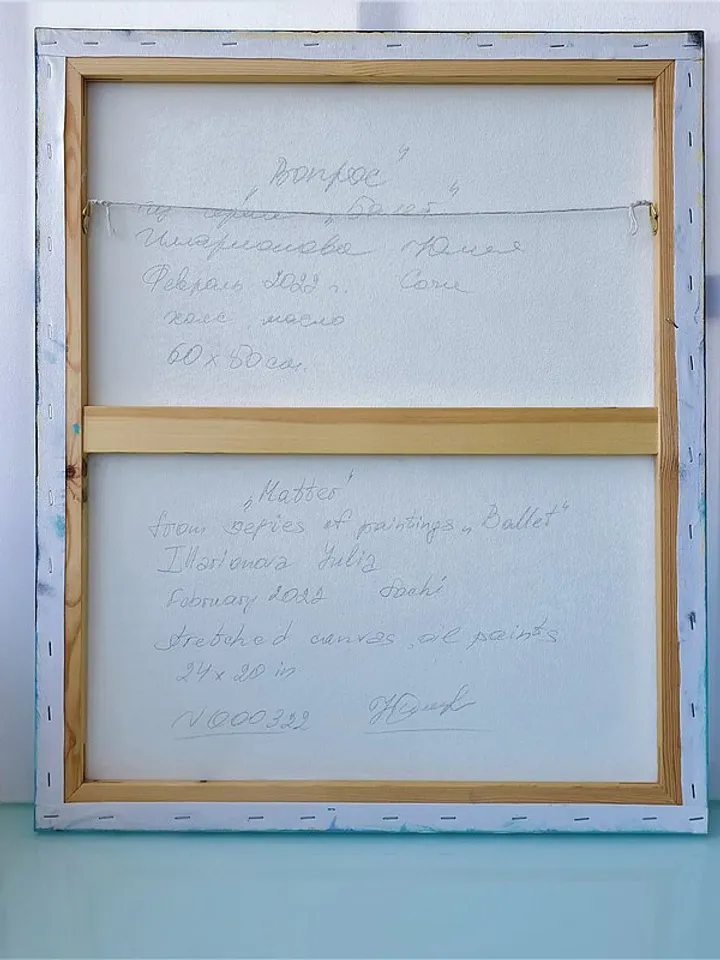 „Вопрос"
из серии „Балет"
Илларионова Юлия
Февраль 2022 г. Сочи
холст масло
60 x 50 см.
„Matter"
from series of paintings „Ballet"
Illarionova Yulia
February 2022 Sochi
stretched canvas, oil paints
24 x 20 in
N000322